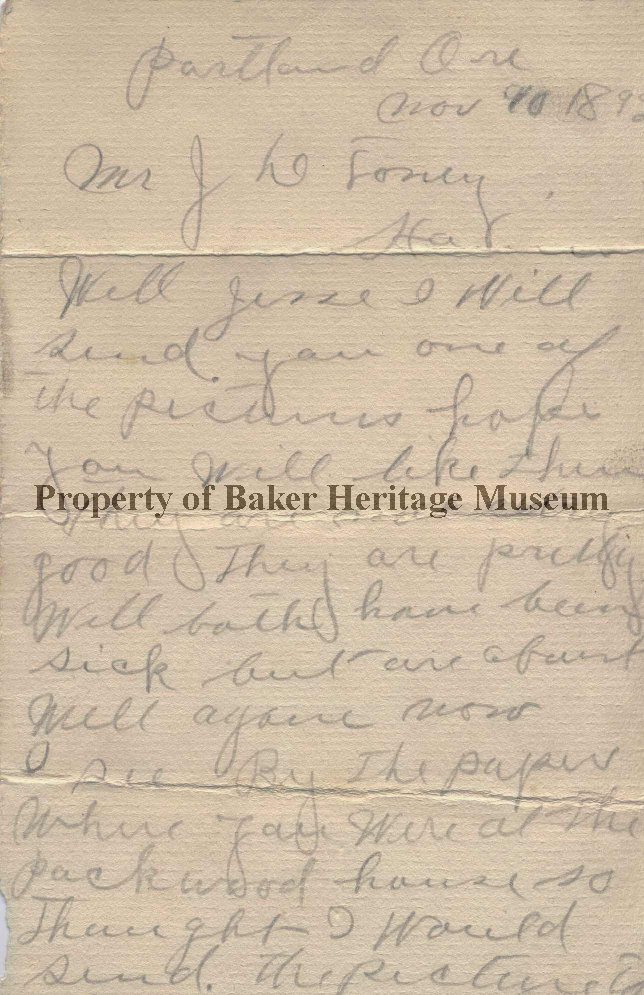 Portland Ore
Nov 10 189
Mr J W Toney
Well Jesse I Will
send you one of
the pictures hope
you Will like them
Property of Baker Heritage Museum
They are
good They are pretty
Well both have been
sick but are about
Well again now
I see By The papers
Where you Were at The
packwood house so
Thaught I Would
send. The picture To